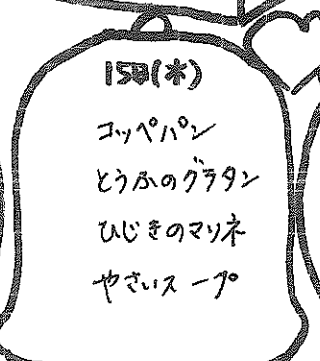 15日(木)
コッペパン
とうふのグラタン
ひじきのマリネ
やさいスープ